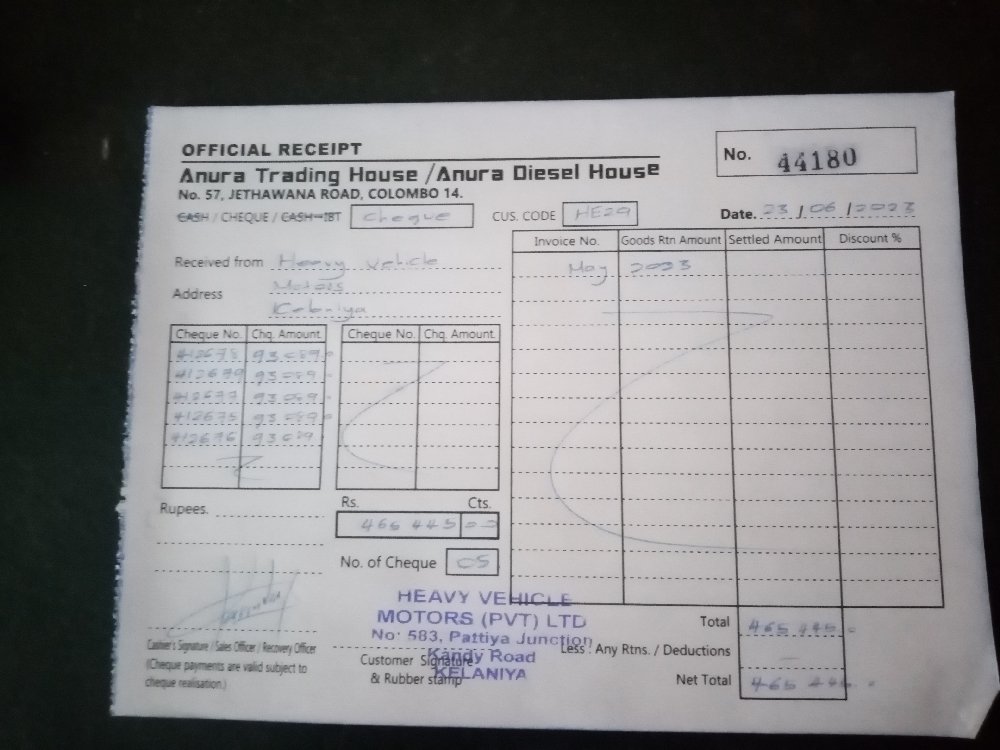 OFFICIAL RECEIPT
No. 44180
Anura Trading House / Anura Diesel House
No. 57, JETHAWANA ROAD, COLOMBO 14.
CASH / CHEQUE / CASH-IBT Cheque CUS. CODE HE29 Date. 23 / 06 / 2023
Invoice No. Goods Rtn Amount Settled Amount Discount %
May 2023
Received from Heavy Vehicle
Motors
Address
Kelaniya
Cheque No. Chq. Amount. Cheque No. Chq. Amount.
412678 93 089
412679 93 089
412677 93 089
412675 93 089
412676 93 089
Rupees.
Rs. Cts.
465 445 00
No. of Cheque 05
HEAVY VEHICLE
MOTORS (PVT) LTD
No: 583, Pattiya Junction
Kandy Road
KELANIYA
Total 465 445
Less : Any Rtns. / Deductions –
Net Total 465 445
Cashier's Signature / Sales Officer / Recovery Officer
(Cheque payments are valid subject to
cheque realisation.)
Customer Signature
& Rubber stamp